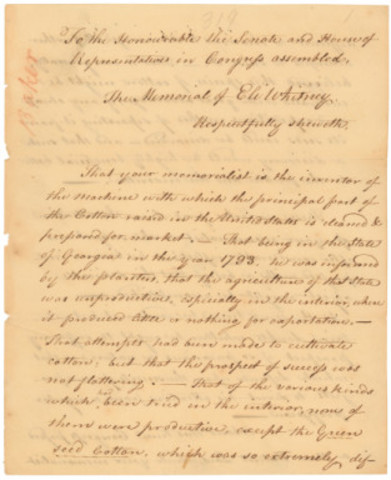 To the Honourable the Senate and House of
Representatives in Congress assembled.
The Memorial of Eli Whitney.
Respectfully sheweth,
That your memorialist is the inventor of
the machine with which the principal part of
the Cotton raised in the United States is cleaned &
prepared for market. — That being in the State
of Georgia in the year 1793. he was informed
by the planters, that the agriculture of that State
was unproductive, especially in the interior, where
it produced little or nothing for exportation. —
That attempts had been made to cultivate
cotton: but that the prospect of success was
not flattering: — That of the various kinds
which had been tried in the interior, none of
them were productive, except the Green
seed Cotton, which was so extremely dif-
Baker